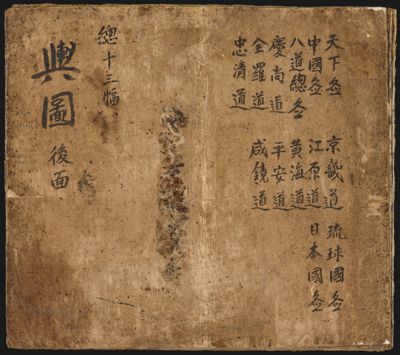 天下圖 京畿道 琉球國圖
中國圖 江原道 日本國圖
八道總圖 黃海道
慶尚道 平安道
全羅道 咸鏡道
忠清道
總十三幅
輿圖 後面